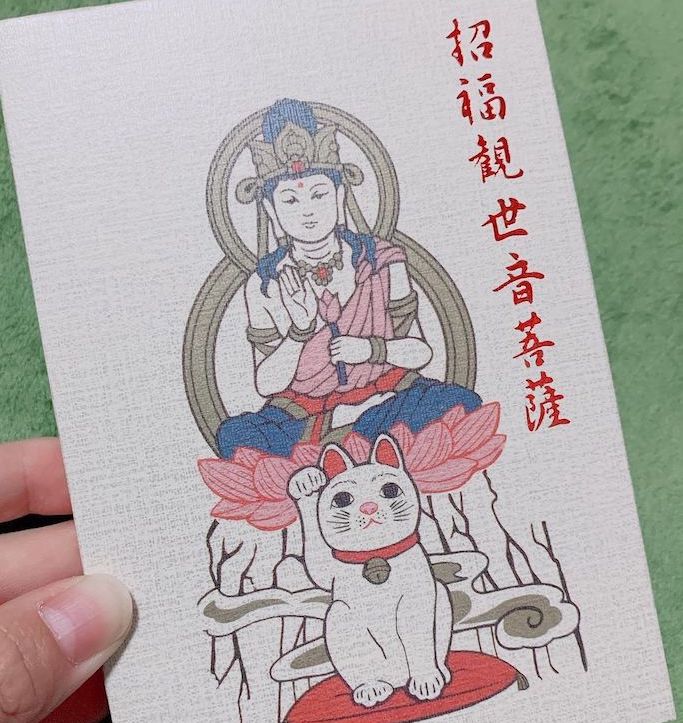 招福観世音菩薩